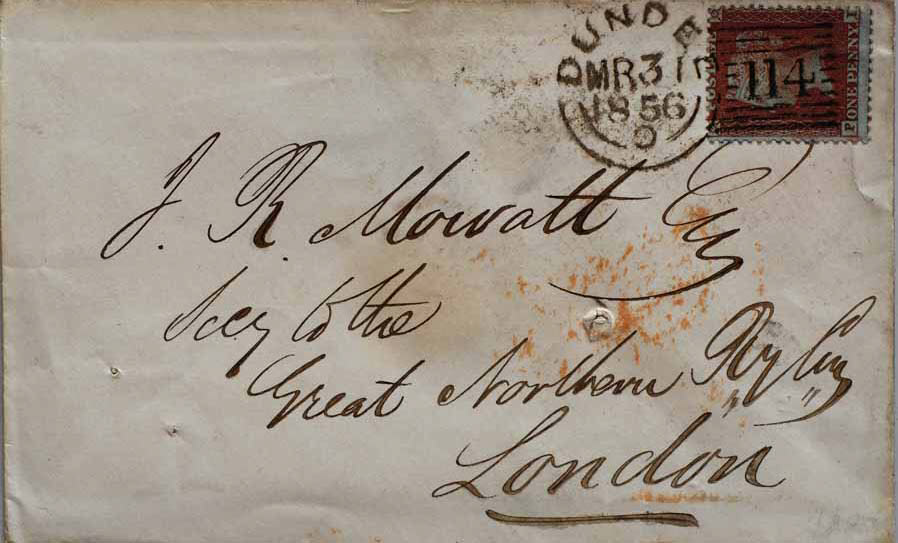 DUNDE
MR 31
1856
D
114
ONE PENNY
P
J. R. Mowatt Esq
Secy to the
Great Northern Ry Coy
London